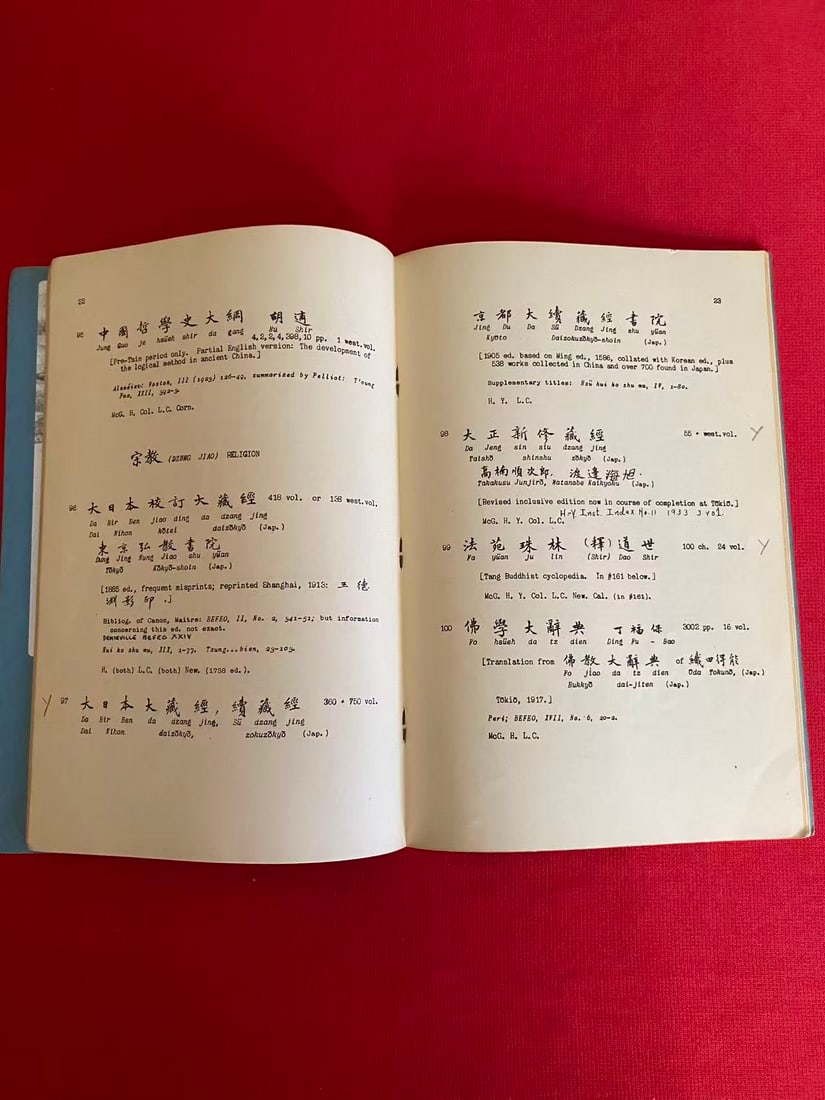 22
95 中國哲學史大綱 胡適
Jung Guo je hsüeh shir da gang Hu Shir
4,2,2,4,398,10 pp. 1 west.vol.
[Pre-Tsin period only. Partial English version: The development of
the logical method in ancient China.]
Alexéiev: Vostok, III (1923) 126-42, summarized by Pelliot: T'oung
Pao, XXII,
McG. H. Col. L.C. Corn.
宗教 (DZUNG JIAO) RELIGION
96 大日本校訂大藏經 418 vol. or 138 west.vol.
Da Bir Ben jiao ding da dzang jing
Dai Nihon kōtei daizōkyō (Jap.)
東京弘敎書院
Dung Jing Hung Jiao shu yüan
Tōkyō Kōkyō-shoin (Jap.)
[1885 ed., frequent misprints; reprinted Shanghai, 1913: 王德
淵影印.]
Bibliog. of Canon, Maitre: BEFEO, II, No. 2, 341-51; but information
concerning this ed. not exact.
DEMIEVILLE BEFEO XXIV
Hui ko shu mu, III, 1-77. Tsung...bien, 23-103.
H. (both) L.C. (both) New. (1738 ed.).
Y 97 大日本大藏經, 續藏經 360 + 750 vol.
Da Bir Ben da dzang jing, Sü dzang jing
Dai Nihon daizōkyō, zokuzōkyō (Jap.)
23
京都大續藏經書院
Jing Du Da Sü Dzang Jing shu yüan
Kyōto Daizokuzōkyō-shoin (Jap.)
[1905 ed. based on Ming ed., 1586, collated with Korean ed., plus
538 works collected in China and over 700 found in Japan.]
Supplementary titles: Hsü hui ko shu mu, IV, 1-80.
H. Y. L.C.
98 大正新修藏經 55 + west.vol. Y
Da Jeng sin siu dzang jing
Taishō shinshu zōkyō (Jap.)
高楠順次郎, 渡邊海旭.
Takakusu Junjirō, Watanabe Kaikyoku (Jap.)
[Revised inclusive edition now in course of completion at Tōkiō.]
H-Y Inst. Index No. 11 1933 3 vol.
McG. H. Y. Col. L.C.
99 法苑珠林 (釋)道世 100 ch. 24 vol. Y
Fa yüan ju lin (Shir) Dao Shir
[Tang Buddhist cyclopedia. In #161 below.]
McG. H. Y. Col. L.C. New. Cal. (in #161).
100 佛學大辭典 丁福保 3002 pp. 16 vol.
Fo hsüeh da tz dien Ding Fu - Bao
[Translation from 佛教大辭典 of 織田得能
Fo jiao da tz dien Oda Tokunō, (Jap.)
Bukkyō dai-jiten (Jap.)
Tōkiō, 1917.]
Peri; BEFEO, XVII, No. 6, 20-2.
McG. H. L.C.